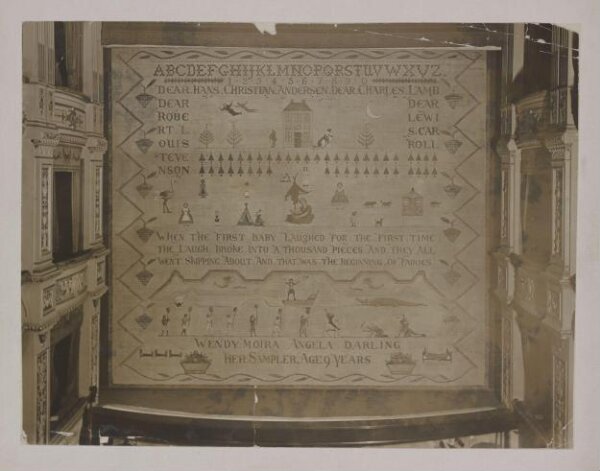 ABCDEFGHIJKLMNOPQRSTUVWXYZ.
1 2 3 4 5 6 7 8 9 0
DEAR HANS CHRISTIAN ANDERSEN, DEAR CHARLES LAMB
DEAR
ROBE
RT L
OUIS
STEVE
NSON
DEAR
LEWI
S CAR
ROLL
WHEN THE FIRST BABY LAUGHED FOR THE FIRST TIME
THE LAUGH BROKE INTO A THOUSAND PIECES AND THEY ALL
WENT SKIPPING ABOUT AND THAT WAS THE BEGINNING OF FAIRIES
WENDY MOIRA ANGELA DARLING
HER SAMPLER, AGE 9 YEARS